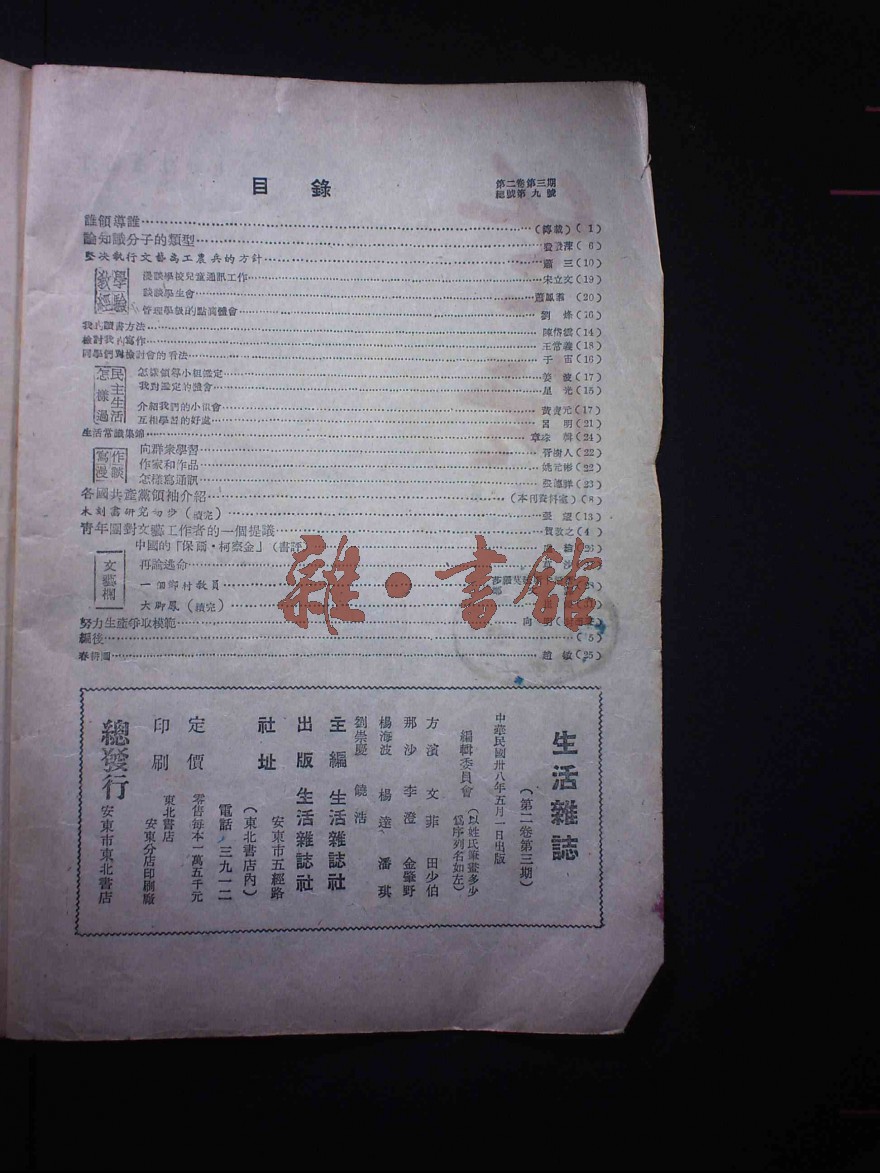 目錄
第二卷第三期
總號第九號
誰領導誰 (傳載) (1)
論知識分子的類型 (6)
堅決執行文藝為工農兵的方針 蕭三 (10)
教學經驗
漫談學校兒童通訊工作 宋立文 (19)
談談學生會 (20)
管理學級的點滴體會 劉 (26)
我的讀書方法 陳岱雲 (14)
檢討我的寫作 王常義 (18)
同學們對檢討會的看法 于雷 (16)
怎樣過民主生活
怎樣領導小組鑑定 姜波 (17)
我對鑑定的體會 星光 (15)
介紹我們的小組會 (17)
互相學習的好處 呂明 (21)
生活常識集錦 輯 (24)
寫作漫談
向群衆學習 胥樹人 (22)
作家和作品 姚元彬 (22)
怎樣寫通訊 張 (23)
各國共產黨領袖介紹 (本刊資料室) (8)
木刻畫研究初步 (續完) 張望 (13)
青年團對文藝工作者的一個提議 賀敦之 (4)
文藝欄
中國的「保爾·柯察金」 (書評)
再論逃命 沙
一個鄉村教員
大脚鳳 (續完)
努力生產爭取模範 向明
編後 (5)
春耕圖 趙敏 (25)
雜·書館
生活雜誌
(第二卷第三期)
中華民國卅八年五月一日出版
編輯委員會 (以姓氏筆畫多少為序列名如左)
方濱 文菲 田少伯
那沙 李澄 金肇野
楊海波 楊達 潘琪
劉崇慶 饒浩
主編 生活雜誌社
出版 生活雜誌社
社址 安東市五經路 (東北書店內)
電話·三九一二
定價 零售每本一萬五千元
印刷 東北書店安東分店印刷廠
總發行 安東市東北書店